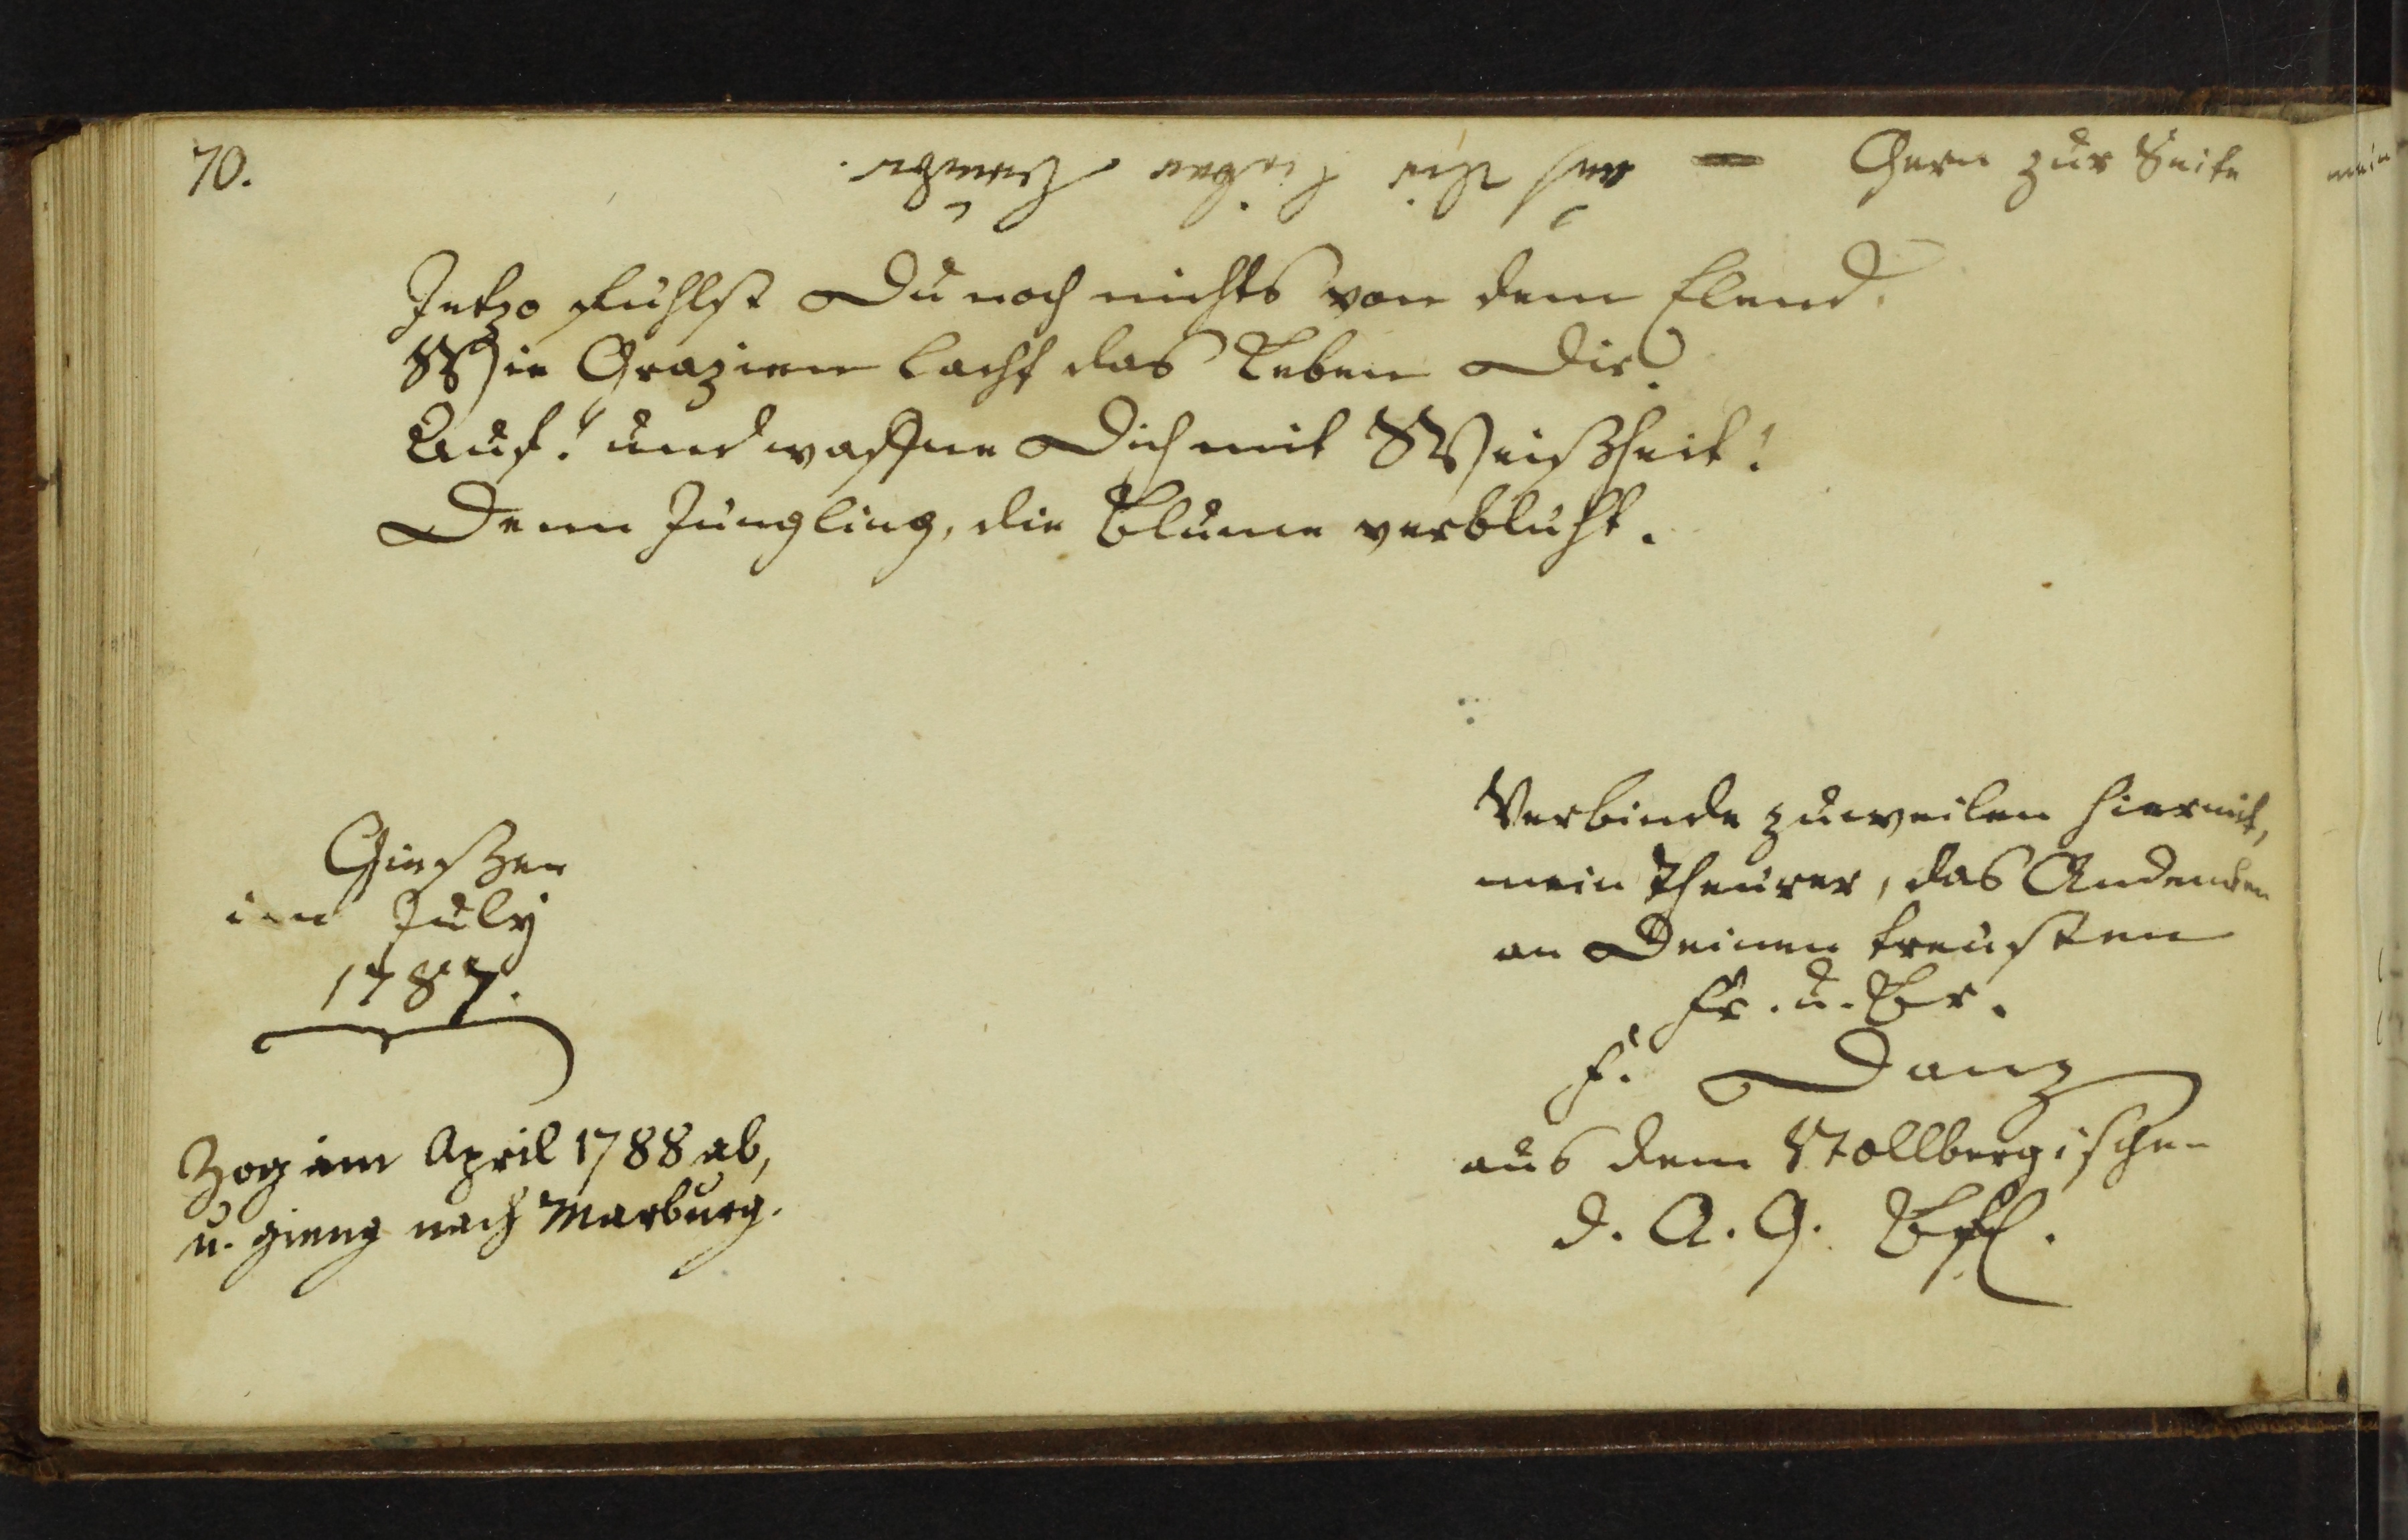 70.
Gern zur Seite
Jetzo fühlst Du noch nichts von dem Elend.
Wie Grazien lacht das Leben Dir.
Auf! und waffne Dich mit Weißheit!
Denn Jüngling, die Blume verblüht.
Gießen
im July
1787.
Verbinde zuweilen hiermit,
mein Theurer, das Andenken
an Deinen treusten
Fr. u. Br.
F. Danz
aus dem Stollbergischen
d. A. G. Bfl.
Zog im April 1788 ab,
u. gieng nach Marburg.